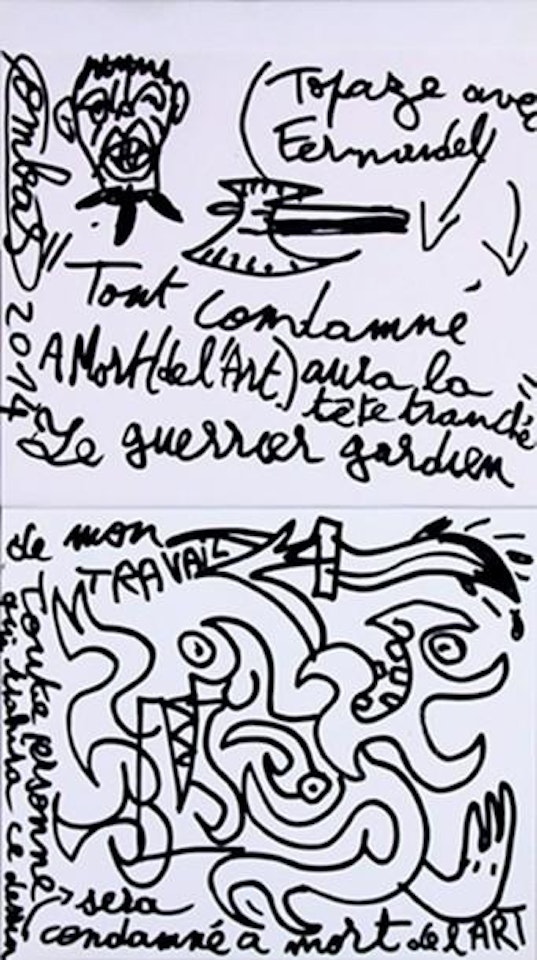 Combas 2014
(Topaze avec
Fernandel
Tout condamné
A Mort (de l'Art) aura la
tête tranché
Le guerrier gardien
de mon
TRAVAIL
Toute personne
qui ce dessin
sera
condamné à mort de l'ART